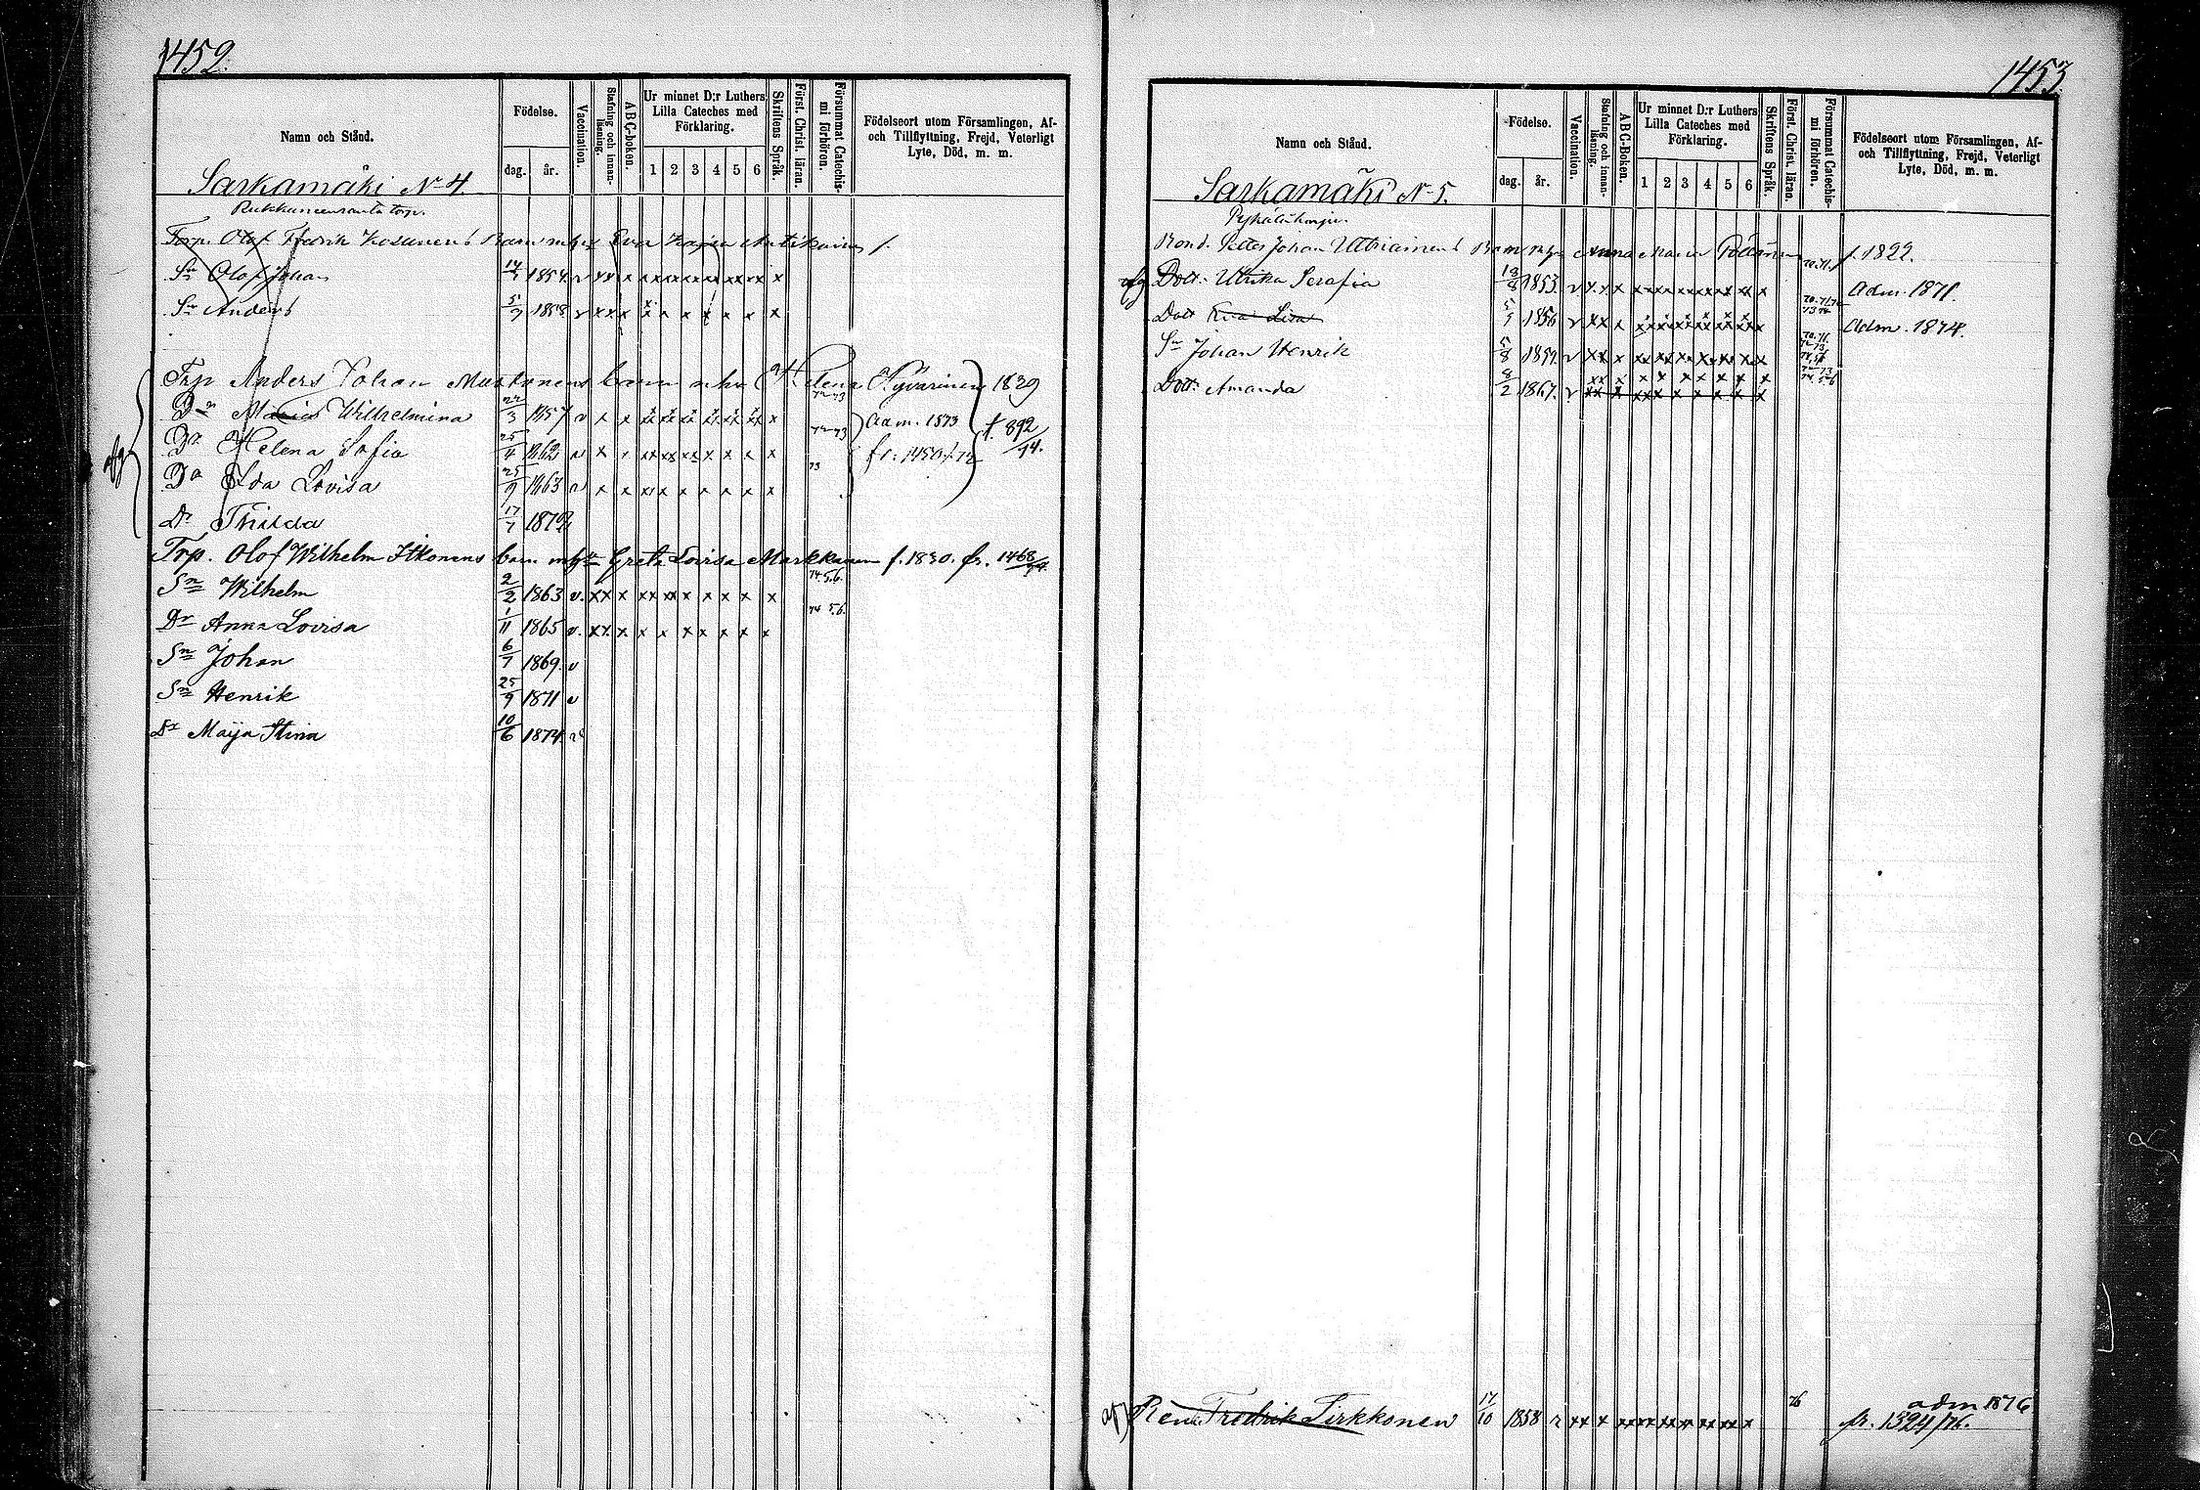 1452.
Namn och Stånd.
Födelse.
dag.
år.
Vaccination.
Stafning och innan-läsning.
ABC-boken.
Ur minnet D:r Luthers Lilla Cateches med Förklaring.
1 2 3 4 5 6
Skriftens Språk.
Först. Christ. läran.
Försummat Catechis-mi förhören.
Födelseort utom Församlingen, Af- och Tillflyttning, Frejd, Veterligt Lyte, Död, m. m.
Sarkamäki N 4.
Torp. Olof Fredrik Kosunens Barn Eva Kajsa
Sn Olof Johan 1854 v xx x xx xx xx xx xx xx x
Sn Anders 5/9 1858 v xx x x x x x x x x
Trp Anders Johan Mustonens barn Helena Hyvärinen 1839
Dr Maria Wilhelmina 22/3 1857 v x x x adm. 1873
Dr Helena Sofia 25/4 1862 v x x xx xx xx x x x x fr. 1450
Dr Ida Lovisa 25/9 1863 v x x x x x x x x x
t. 892/74.
afg
Dr Thilda 17/7 1872
Trp. Olof Wilhelm Itkonens barn Greta Lovisa Markkanen f. 1830. fr. 1468/74
Sn Wilhelm 2/2 1863 v. xx x xx xx x x x x x 74.5.6.
Dr Anna Lovisa 1/11 1865 v. xx x x x xx x x x x 74 5.6.
Sn Johan 6/7 1869. v
Sn Henrik 25/9 1871 v
Dr Maija Stina 10/6 1874 v
1453.
Namn och Stånd.
Födelse.
dag.
år.
Vaccination.
Stafning och innan-läsning.
ABC-Boken.
Ur minnet D:r Luthers Lilla Cateches med Förklaring.
1 2 3 4 5 6
Skriftens Språk.
Först. Christ. läran.
Försummat Catechis-mi förhören.
Födelseort utom Församlingen, Af- och Tillflyttning, Frejd, Veterligt Lyte, Död, m. m.
Sarkamäki N 5.
Bond. Petter Johan Ultriainens Barn Anna Maria f. 1822.
afg Dott. Ulrika Serafia 13/8 1853 v xx x xx xx xx xx xx xx x 70.71. adm. 1871.
Dott Eva Lisa 5/9 1856 v xx x adm. 1874.
Sn Johan Henrik 5/8 1859. v xx x xx xx xx xx xx xx x
Dott. Amanda 8/2 1867. v xx x x x x x x x x
afg Ren Fredrik Sirkkonen 17/10 1858 v xx x xx xx xx xx xx xx x 76 adm 1876
fr. 1324/76.